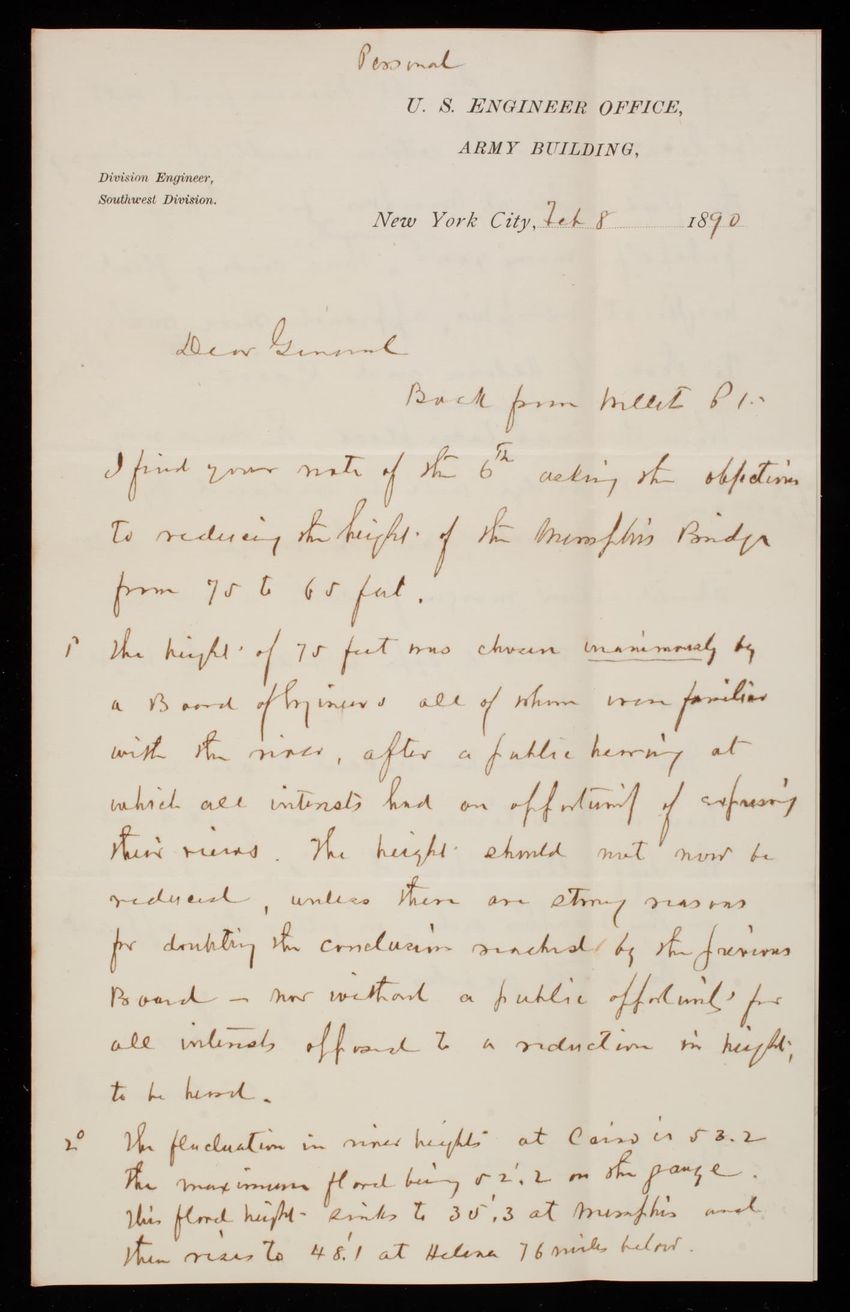 Personal
U. S. ENGINEER OFFICE,
ARMY BUILDING,
Division Engineer,
Southwest Division.
New York City, Feb 8 1890
Dear General
Back from Willets Pt.
I find your note of the 6th asking the objections
to reducing the height of the Memphis Bridge
from 75 to 65 feet.
1° The height of 75 feet was chosen unanimously by
a Board of Engineers all of whom were familiar
with the river, after a public hearing at
which all interests had an opportunity of expressing
their views. The height should not now be
reduced, unless there are strong reasons
for doubting the conclusion reached by the previous
Board — nor without a public opportunity for
all interests opposed to a reduction in height,
to be heard.
2° The fluctuation in river heights at Cairo is 53.2
the maximum flood being 52'.2 on the gauge.
This flood height sinks to 35'.3 at Memphis and
then rises to 48'.1 at Helena 76 miles below.